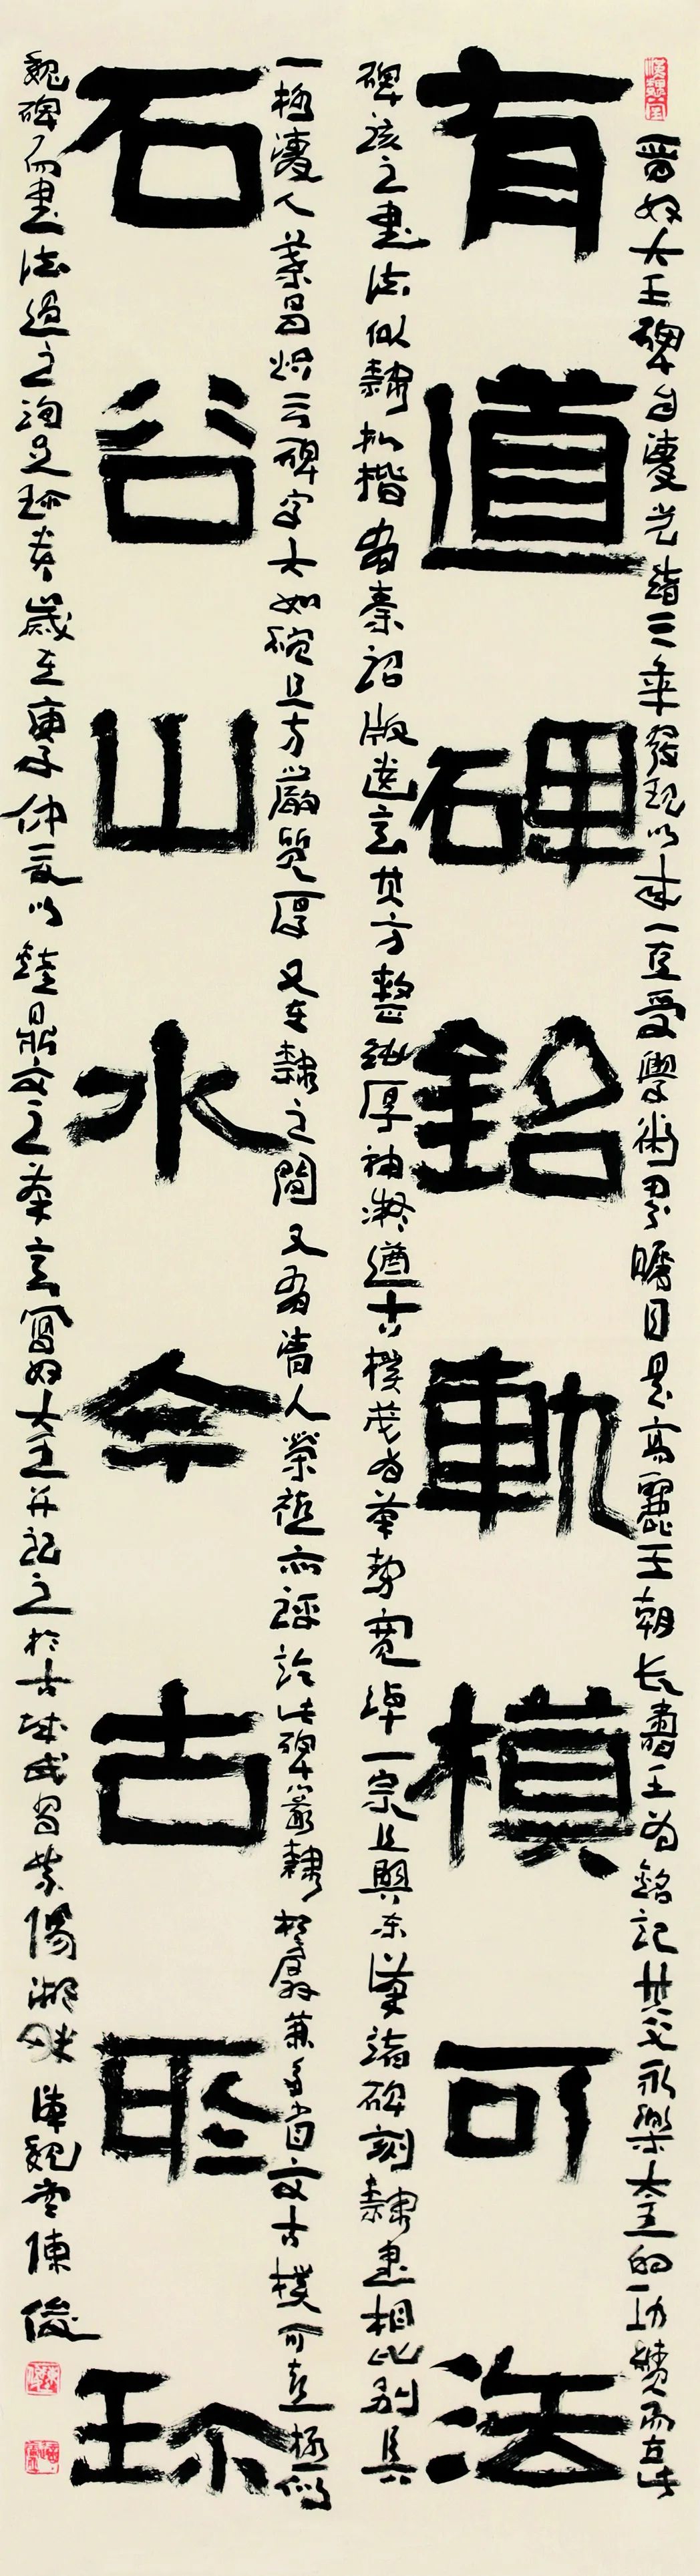 晋好大王碑自清光緒三年發現以来一直受學術界瞩目是高麗王朝长壽王為銘記其父永樂大王的功績而立此
有道碑銘軌模可法
碑該之書法似隸似楷為秦詔版遗意其方整純厚神凝遒古樸茂為筆勢寬綽一宗且與東漢諸碑刻隸書相比別具
一格清人葉昌炽云碑字大如碗且方嚴質厚又在隸之間又為清人榮禧亦評論此碑篆隸相參兼多省文古樸可喜極似
石谷山水今古所珍
魏碑而書法過之洵足珍貴歲在庚子仲夏以鐘鼎文之筆意寫好大王并記之於古城紫陽湖畔漢魏堂陳俊